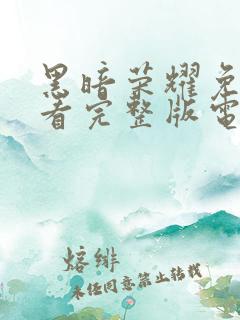 黑暗荣耀免
看完整版電
熔绯
未经同意禁止转载